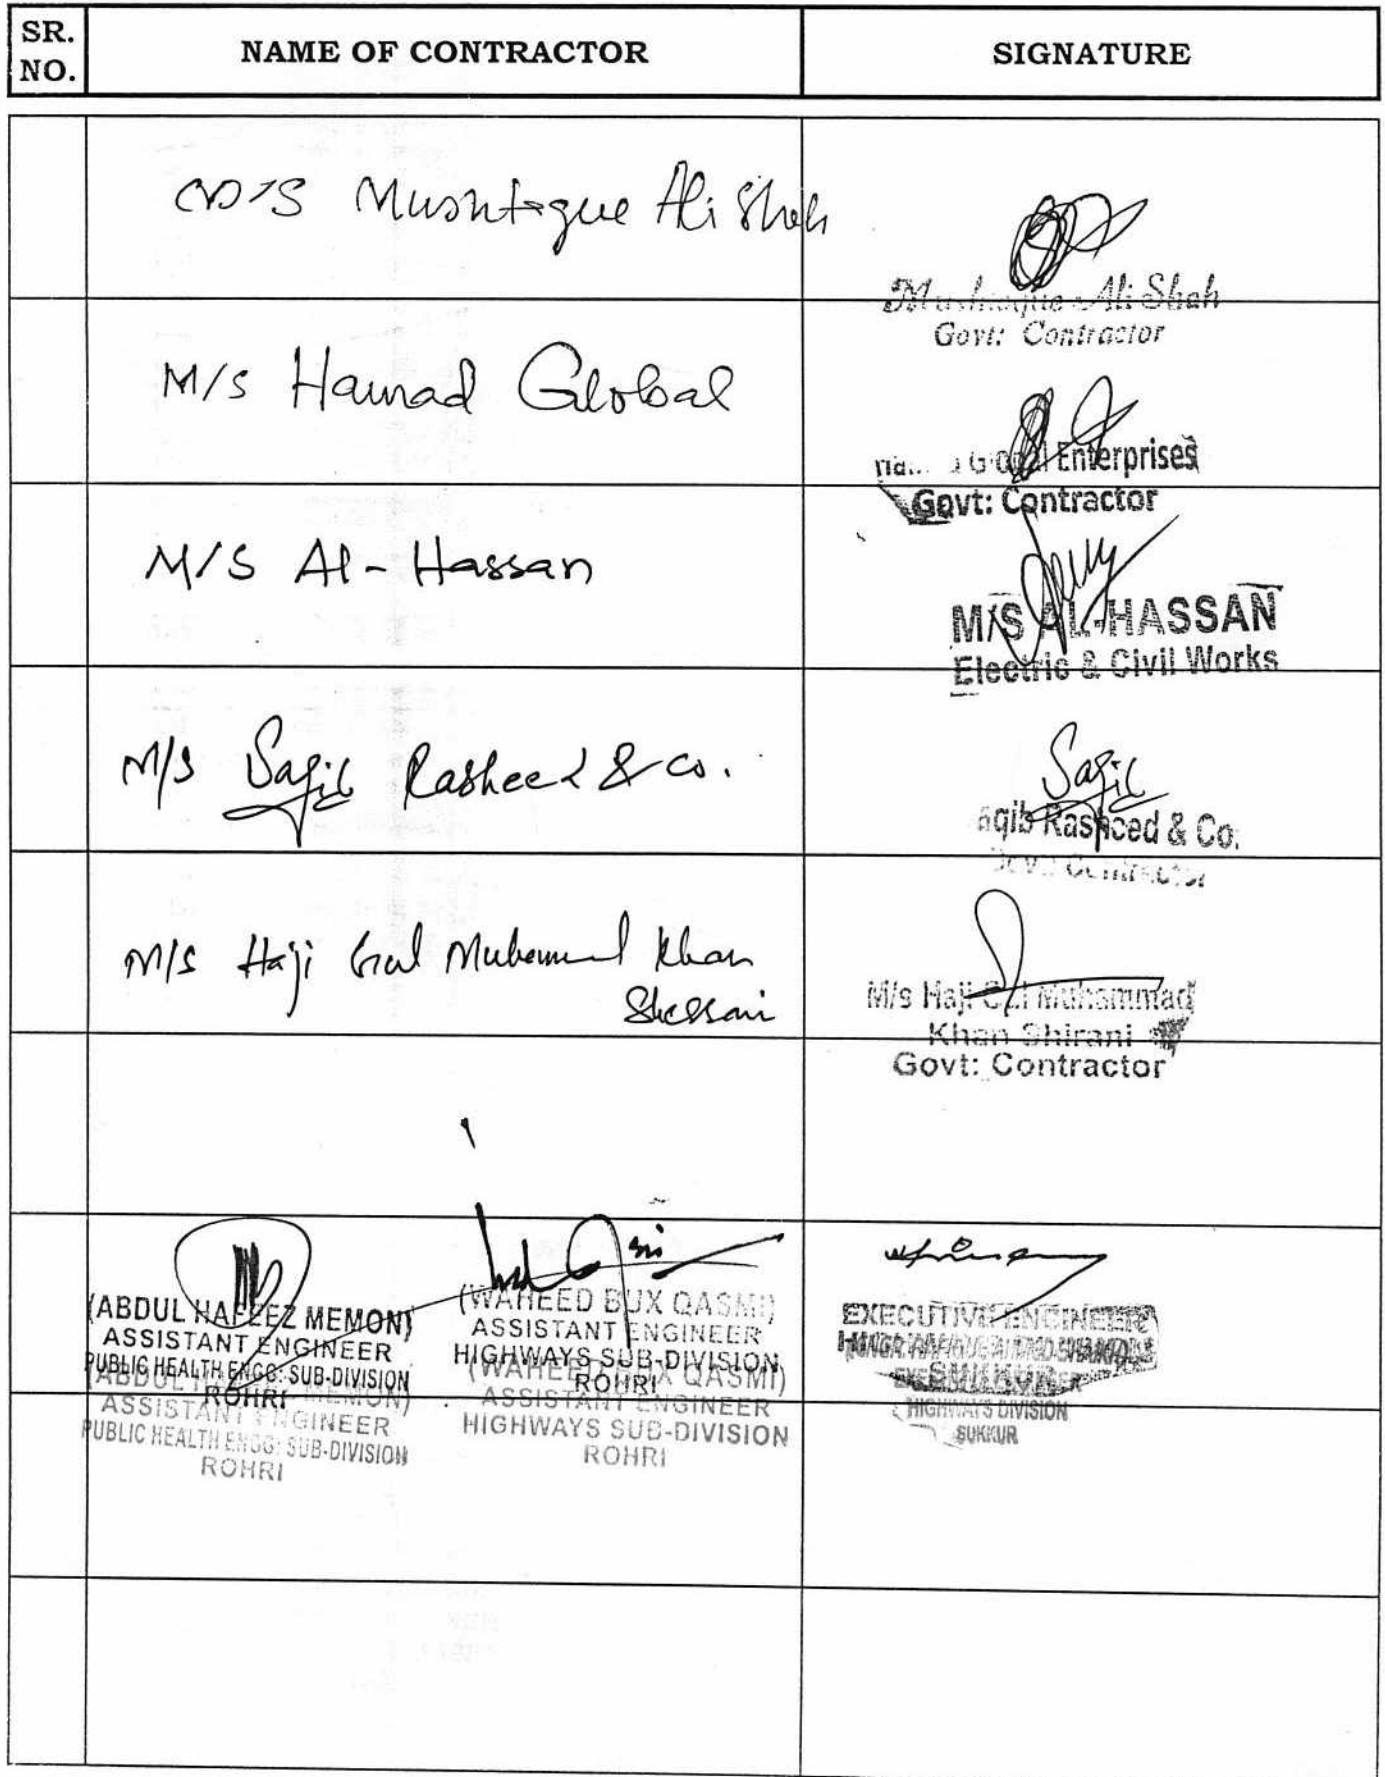 SR. NO.
NAME OF CONTRACTOR
SIGNATURE
M/S Mushtaque Ali Shah
Mushtaque Ali Shah
Govt: Contractor
M/S Hamad Global
Global Enterprises
Govt: Contractor
M/S Al-Hassan
M/S AL-HASSAN
Electric & Civil Works
M/S Saqib Rasheed & Co.
Saqib
aqib Rasheed & Co.
Govt: Contractor
M/S Haji Gul Muhammad Khan
M/s Haji Gul Muhammad
Khan Shirani
Govt: Contractor
(ABDUL HAFEEZ MEMON)
ASSISTANT ENGINEER
PUBLIC HEALTH ENGG: SUB-DIVISION
ROHRI
(ABDUL HAFEEZ MEMON)
ASSISTANT ENGINEER
PUBLIC HEALTH ENGG: SUB-DIVISION
ROHRI
(WAHEED BUX QASMI)
ASSISTANT ENGINEER
HIGHWAYS SUB-DIVISION
ROHRI
(WAHEED BUX QASMI)
ASSISTANT ENGINEER
HIGHWAYS SUB-DIVISION
ROHRI
EXECUTIVE ENGINEER
SUKKUR
HIGHWAYS DIVISION
SUKKUR